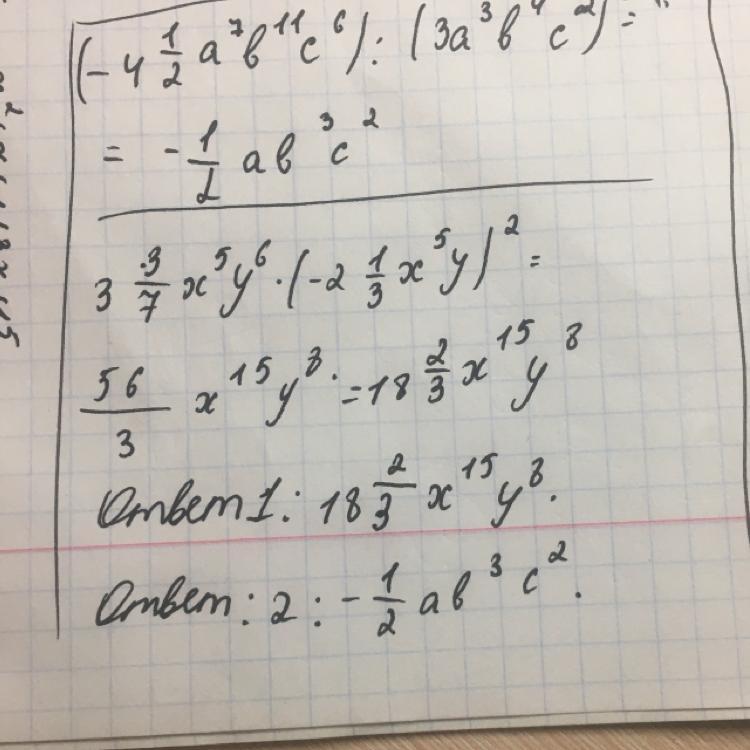 (-4 1/2 a⁷b¹¹c⁶) : (3a³b⁴c²) =
= -1/2 ab³c²
3 3/7 x⁵y⁶ · (-2 1/3 x⁵y)² =
56/3 x¹⁵y⁸ · = 18 2/3 x¹⁵y⁸
Ответ 1: 18 2/3 x¹⁵y⁸.
Ответ: 2: -1/2 ab³c².